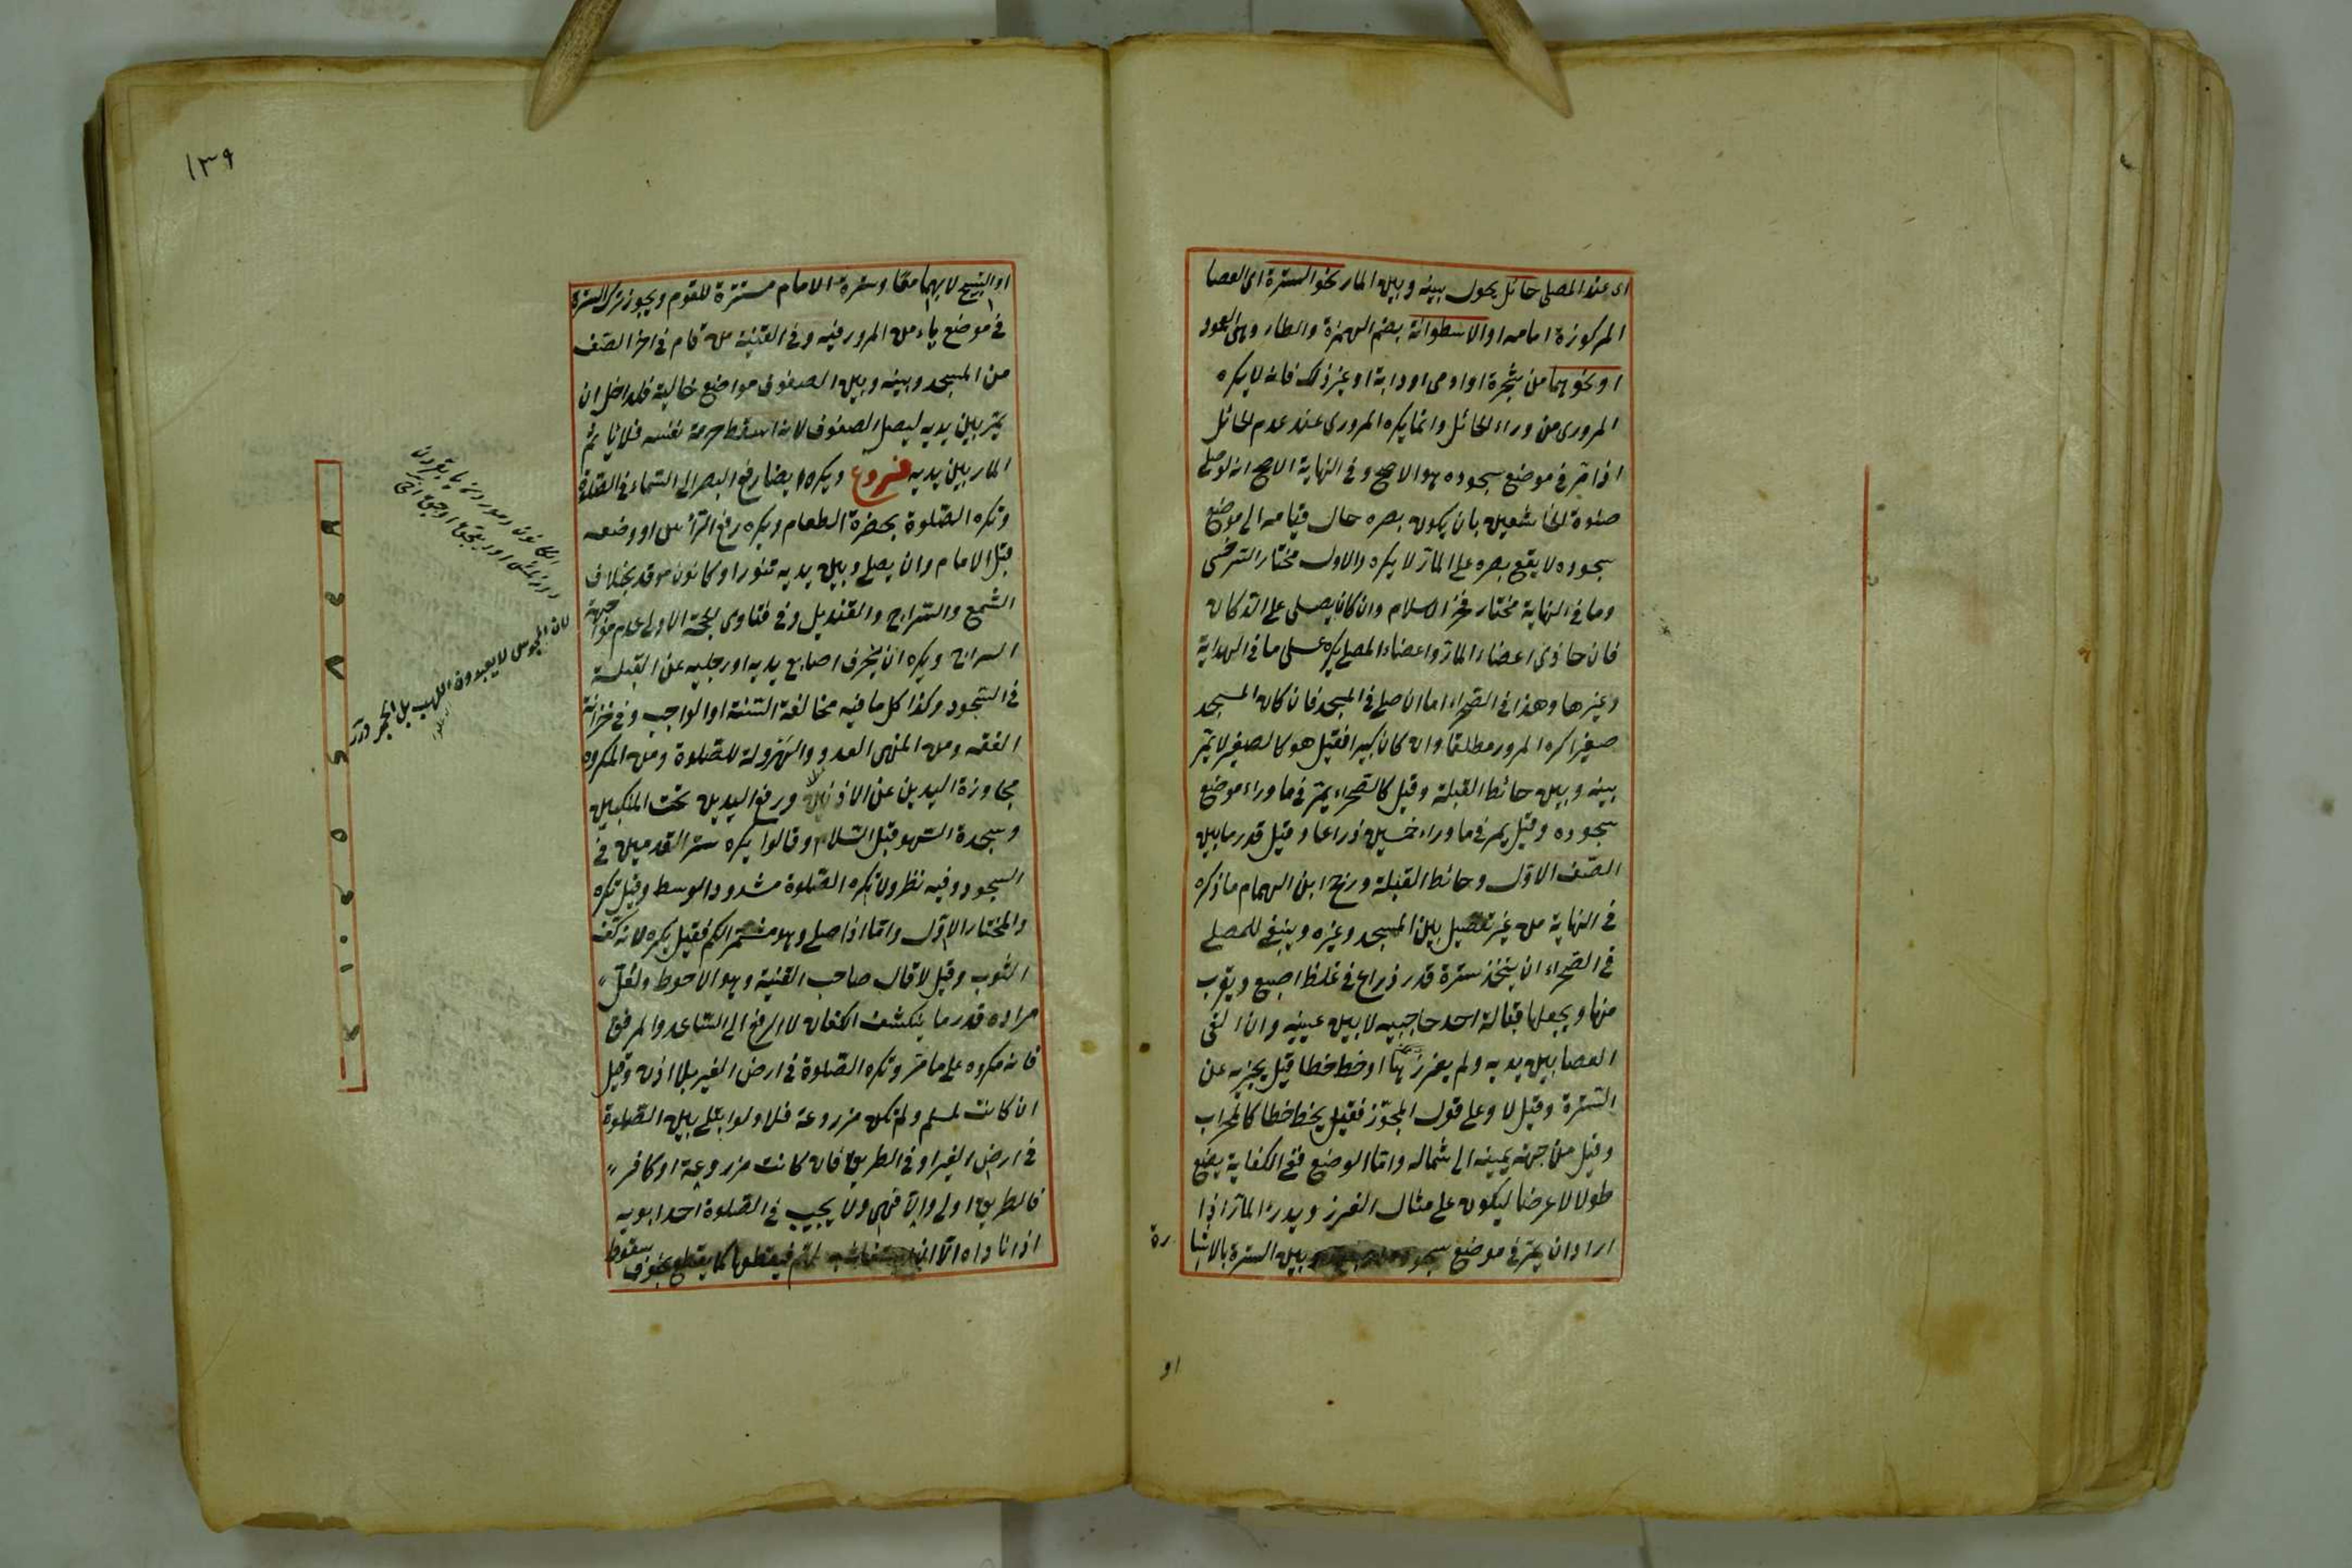 اى عند المصلى حائل يحول بينه وبين المار نحو السترة اى العصا
المركوزة امامه او الاسطوانة بضم الهمزة والطاء وهى العمود
او نحوهما من شجرة او ادمى او دابة او غير ذلك فانه لا يكره
المرور من وراء الحائل وانما يكره المرور عند عدم الحائل
اذا مر فى موضع سجوده هو الاصح وفى النهاية الاصح انه لو صلى
صلوة الخاشعين بان يكون بصره حال قيامه الى موضع
سجوده لا يقع بصره على المار لا يكره والاول مختار السرخسى
وما فى النهاية مختار فخر الاسلام وان كان يصلى على الدكان
فان حاذى اعضاء المار اعضاء المصلى يكره على ما فى الهداية
وغيرها وهذا فى الصحراء اما ان صلى فى المسجد فان كان المسجد
صغيرا كره المرور مطلقا وان كان كبيرا فقيل هو كالصغير لا يمر
بينه وبين حائط القبلة وقيل كالصحراء يمر فى ما وراء موضع
سجوده وقيل يمر فى ما وراء خمسين ذراعا وقيل قدر ما بين
الصف الاول وحائط القبلة ورجح ابن الهمام ما ذكره
فى النهاية من غير تفصيل بين المسجد وغيره وينبغى للمصلى
فى الصحراء ان يتخذ سترة قدر ذراع فى غلظ اصبع ويقرب
منها ويجعلها قبالة احد حاجبيه لا بين عينيه وان القى
العصا بين يديه ولم يغرزها او خط خطا قيل يجزيه عن
السترة وقيل لا وعلى قول المجوز فقيل يخط خطا كالمحراب
وقيل من جهة يمينه الى شماله واما الوضع ففى الكفاية يضع
طولا لا عرضا ليكون على مثال الغرز ويدرء المار اذا
اراد ان يمر فى موضع سجوده وبين السترة بالاشا
رة
او
١٣٩
او التسبيح لا بهما معا وسترة الامام سترة للقوم ويجوز ترك السترة
فى موضع يامن المرور فيه وفى القنية من قام فى اخر الصف
من المسجد وبينه وبين الصفوف مواضع خالية فللداخل ان
يمر بين يديه ليصل الصفوف لانه اسقط حرمة نفسه فلا ياثم
المار بين يديه فروع ويكره ايضا رفع البصر الى السماء فى الصلوة
وتكره الصلوة بحضرة الطعام ويكره رفع الراس او وضعه
قبل الامام وان يصلى وبين يديه تنور او كانون موقد بخلاف
الشمع والسراج والقنديل وفى فتاوى الحجة الاولى عدم مواجهة
السراج ويكره ان يحرف اصابع يديه او رجليه عن القبلة
فى السجود وكذا كل ما فيه مخالفة السنة او الواجب وفى خزانة
الفقه ومن المنهى العدو والهرولة للصلوة ومن المكروه
مجاوزة اليدين عن الاذنين ورفع اليدين تحت المنكبين
وسجدة السهو قبل السلام وقالوا يكره ستر القدمين فى
السجود وفيه نظر ولا تكره الصلوة مشدود الوسط وقيل تكره
والمختار الاول واما اذا صلى وهو مشمر الكم فقيل يكره لانه كف
الثوب وقيل لا قال صاحب القنية وهو الاحوط ولعل
مراده قدر ما ينكشف الكفان لا الرفع الى الساعد والمرفق
فانه مكروه على ما مر وتكره الصلوة فى ارض الغير بلا اذن وقيل
ان كانت لمسلم ولم تكن مزروعة فلا ولو ابتلى بين الصلوة
فى ارض الغير او فى الطريق فان كانت مزروعة او كافر
فالطريق اولى والا فهى ولا يجيب فى الصلوة احد ابويه
اذا ناداه الا ان استغاث به لمهم فيقطعها كما يقطع بخوف سقوط
لان المجوس لا يعبدون اللهب بل الجمر